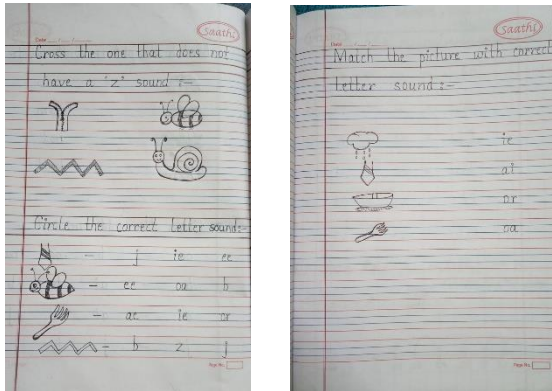 Saathi
Date
Cross the one that does not
have a 'z' sound :-
Circle the correct letter sound:-
- j ie ee
- ee oa b
- ae ie or
- b z j
Page No.
Saathi
Date
Match the picture with correct
letter sound :-
ie
ai
or
oa
Page No.